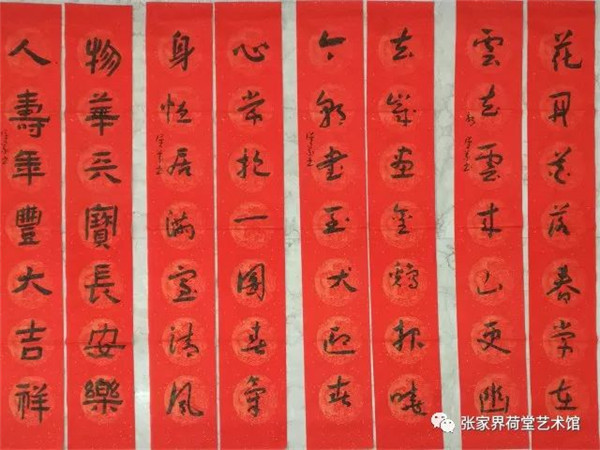 花開花落春常在
雲去雲來山更幽
去歲畫金鷄報曉
今朝書玉犬迎春
心常抱一團春氣
身恒居滿室清風
物華天寶長安樂
人壽年豐大吉祥
张家界荷堂艺术馆